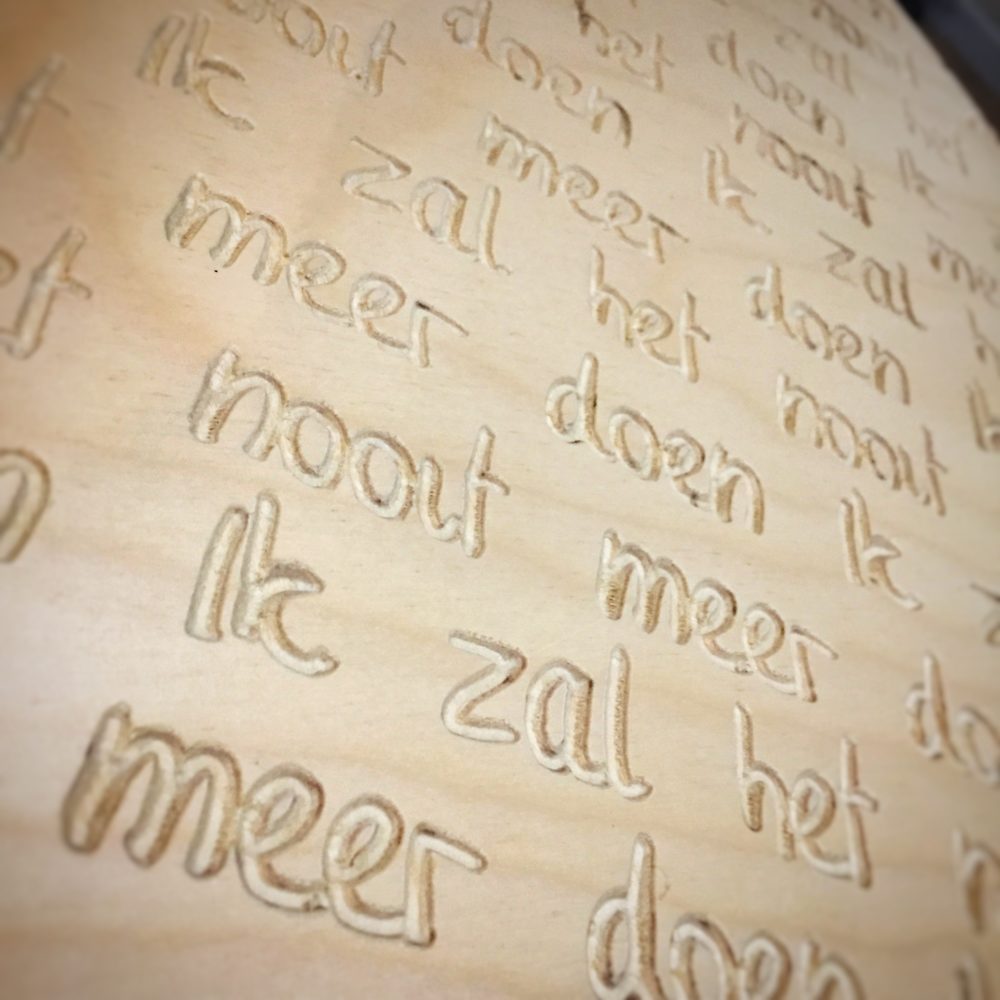 zal het
doen Ik
het nooit meer
doen Ik zal
nooit meer doen Ik
Ik zal het nooit
meer doen Ik
nooit meer
Ik zal het
meer doen